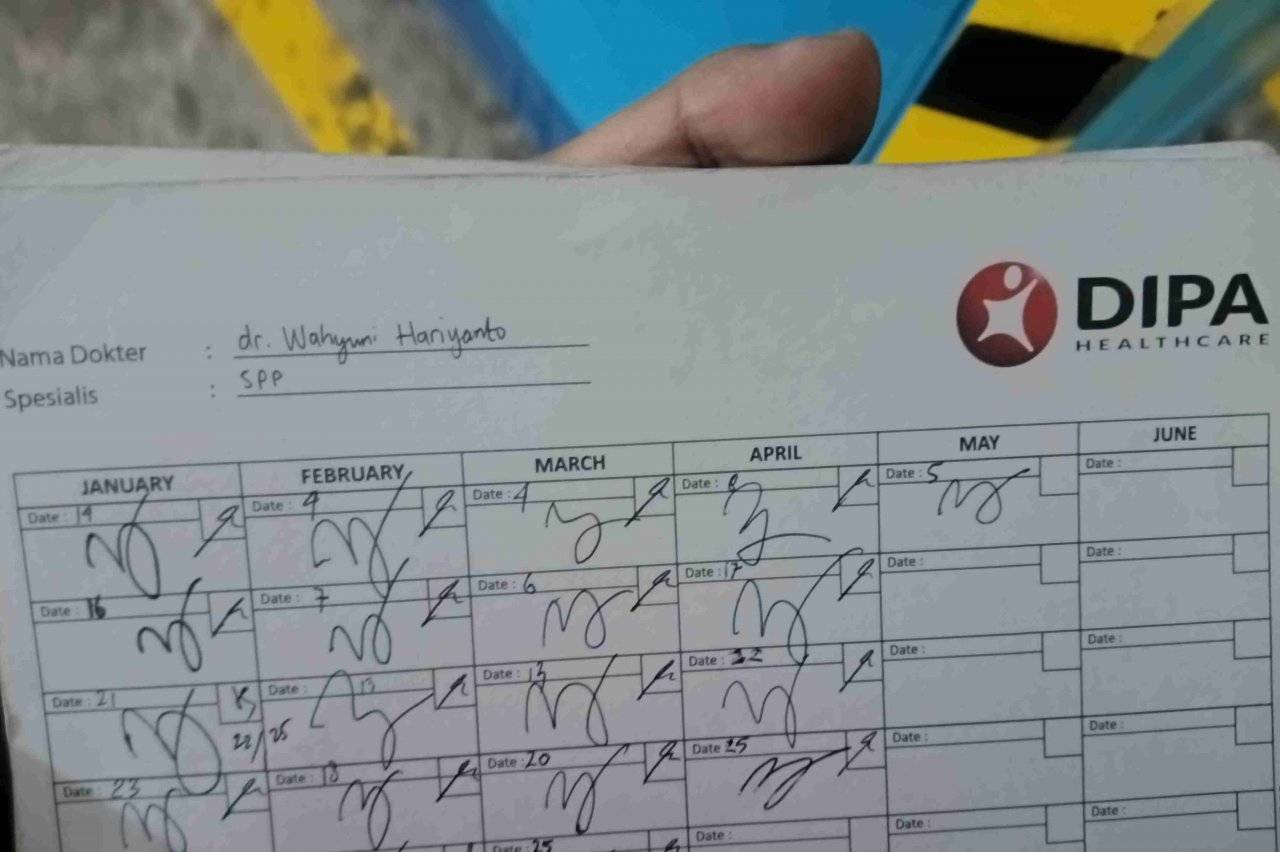 DIPA
HEALTHCARE
Nama Dokter : dr. Wahyuni Hariyanto
Spesialis : SPP
JANUARY FEBRUARY MARCH APRIL MAY JUNE
Date : 14 Date : 4 Date : 4 Date : 8 Date : 5 Date :
Date : 16 Date : 7 Date : 6 Date : 17 Date : Date :
Date : 21 Date : 13 Date : 13 Date : 22 Date : Date :
22/25
Date : 23 Date : 18 Date : 20 Date 25 Date : Date :
Date : 25 Date : Date : Date :